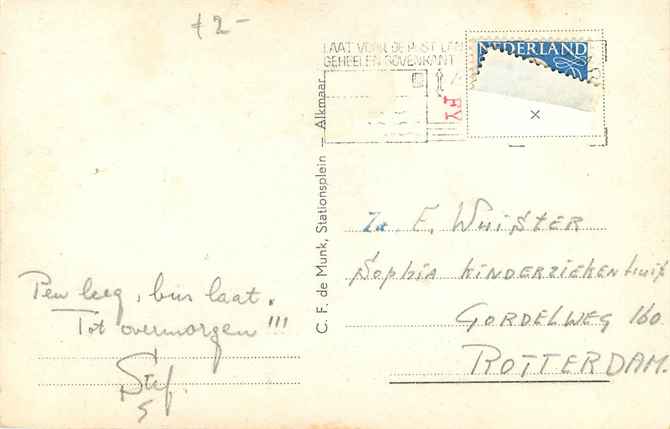 +2-
LAAT VOOR DE POST EEN
GEHEELEN BOVENKANT
NEDERLAND
FY
x
C. F. de Munk, Stationsplein — Alkmaar
Za. E. Wuister
Sophia Kinderziekenhuis
Gordelweg 160
Rotterdam.
Pen leeg, bus laat.
Tot overmorgen!!!
Stef.